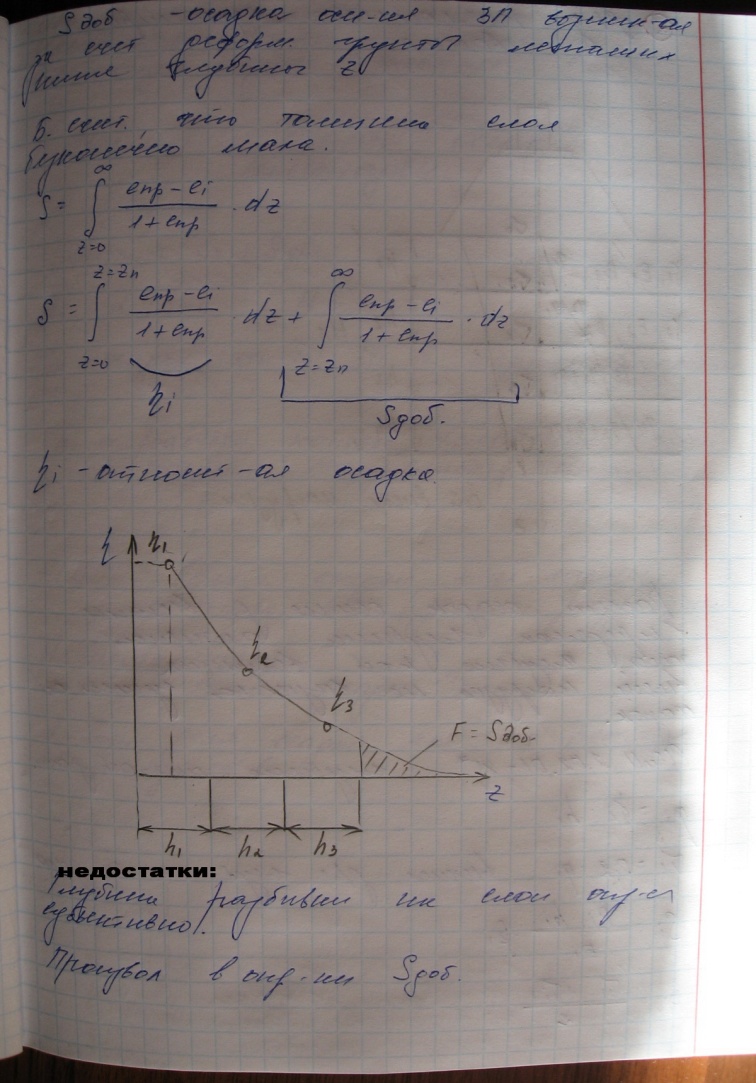 Sдоб - осадка осн-ия ЗП возник-ая
за счет деформ. грунта лежащих
ниже глубины z
Б. счит., что толщина слоя
бесконечно мала.
S = ∫ z=0 ∞ (eпр - ei)/(1 + eпр) · dz
S = ∫ z=0 z=zn (eпр - ei)/(1 + eпр) · dz + ∫ z=zn ∞ (eпр - ei)/(1 + eпр) · dz
ηi Sдоб.
ηi - относит-ая осадка
η η1
η2
η3
F = Sдоб
z
h1 h2 h3
недостатки:
Глубина разбивки на слои опр-я
субъективно.
Произвол в опр-ии Sдоб.